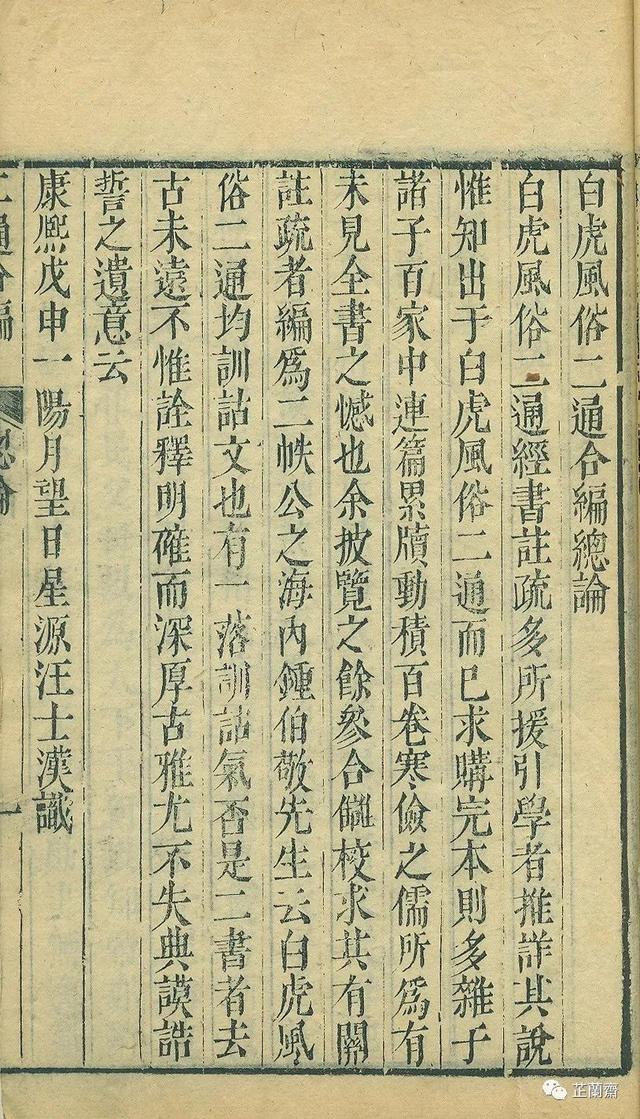 白虎風俗二通合編總論
白虎風俗二通經書註疏多所援引學者推詳其說
惟知出于白虎風俗二通而已求購完本則多雜于
諸子百家中連篇累牘動積百卷寒儉之儒所爲有
未見全書之憾也余披覽之餘參合讎校求其有關
註疏者編爲二帙公之海內鍾伯敬先生云白虎風
俗二通均訓詁文也有一落訓詁氣否是二書者去
古未遠不惟詮釋明確而深厚古雅尤不失典謨誥
誓之遺意云
康熙戊申一陽月望日星源汪士漢識
二通合編
總論
一
芷蘭齋